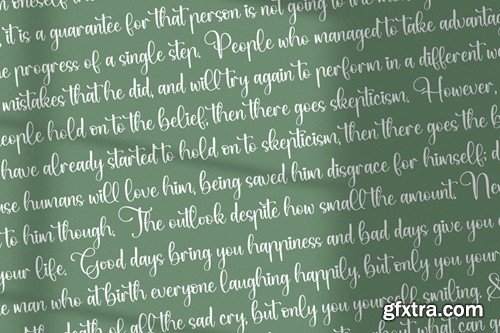 it is a guarantee for that person is not going to
progress of a single step. People who managed to take advanta
mistakes that he did, and will try again to perform in a different w
eople hold on to the belief, then there goes skepticism. However,
have already started to hold on to skepticism, then there goes the b
use humans will love him, being saved him disgrace for himself; d
to him though. The outlook despite how small the amount. Ne
your life. Good days bring you happiness and bad days give you
e man who at birth everyone laughing happily, but only you your
death of all the sad cry, but only you yourself smiling. &
gfxtra.com